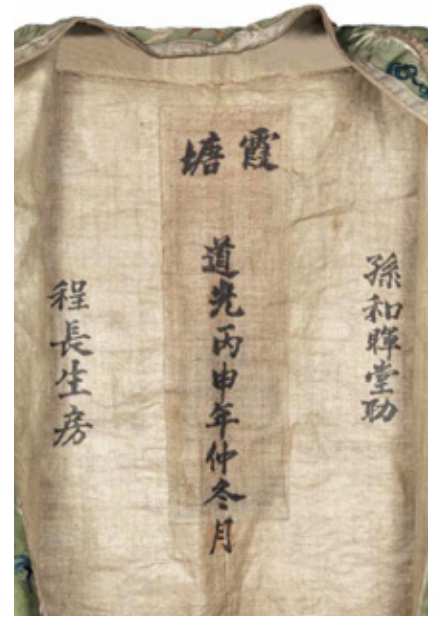 霞塘
孫和暉堂助
道光丙申年仲冬月
程長生房